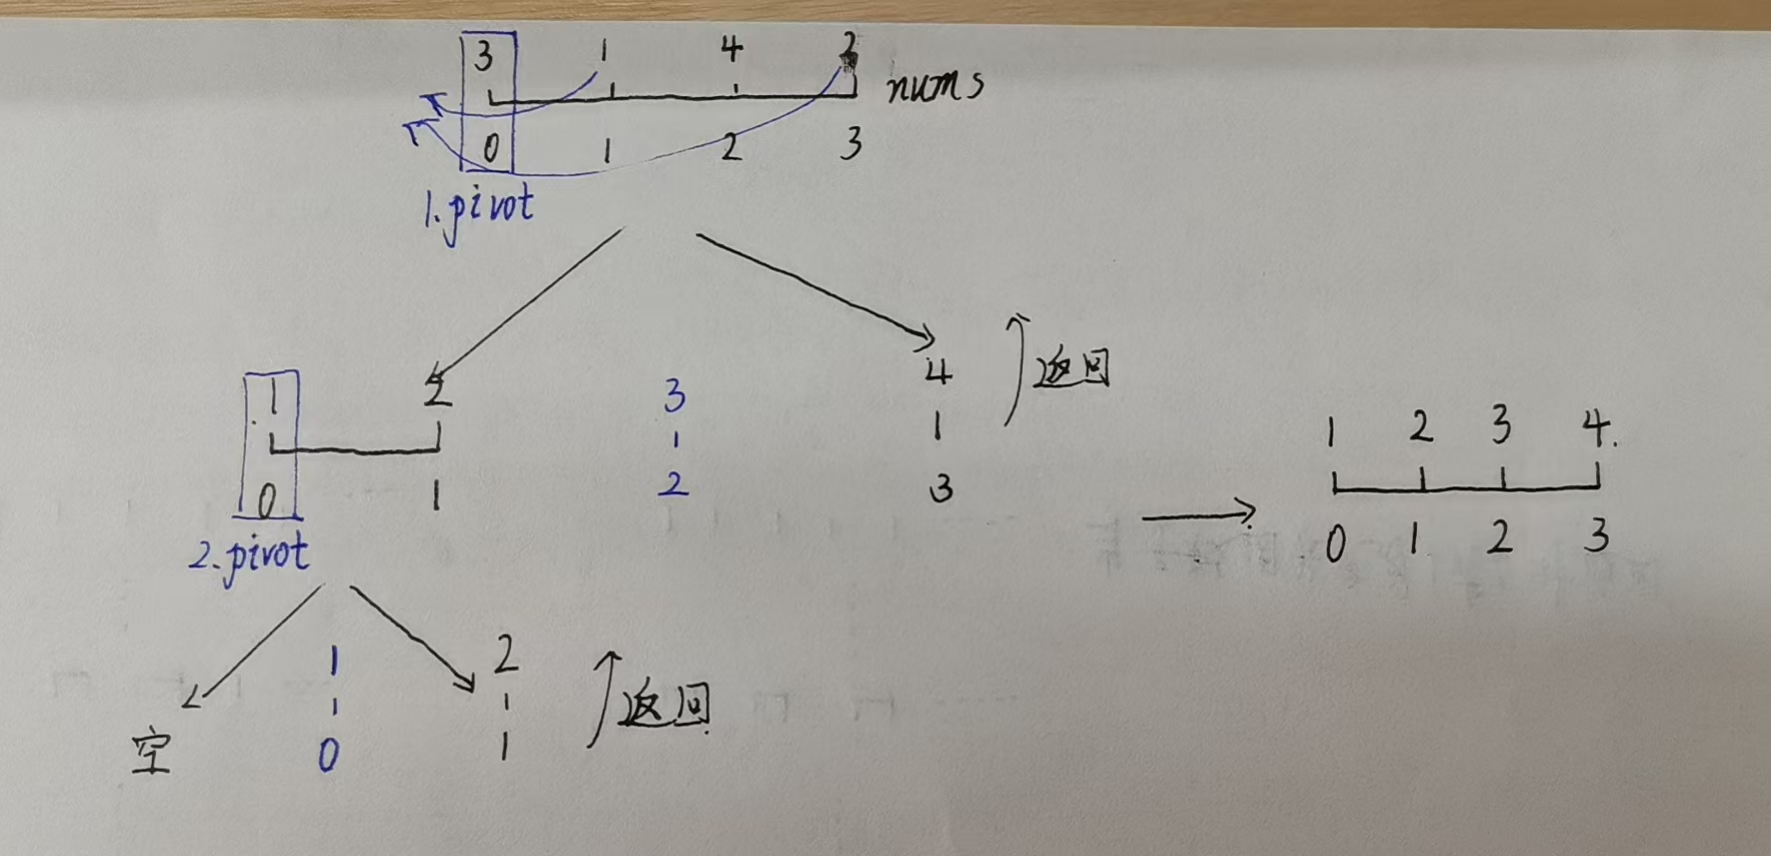 3 1 4 2 nums
0 1 2 3
1.pivot
1 2 3 4 返回
0 1 2 3
2.pivot
1 2 3 4.
0 1 2 3
1 2 返回
空 0 1